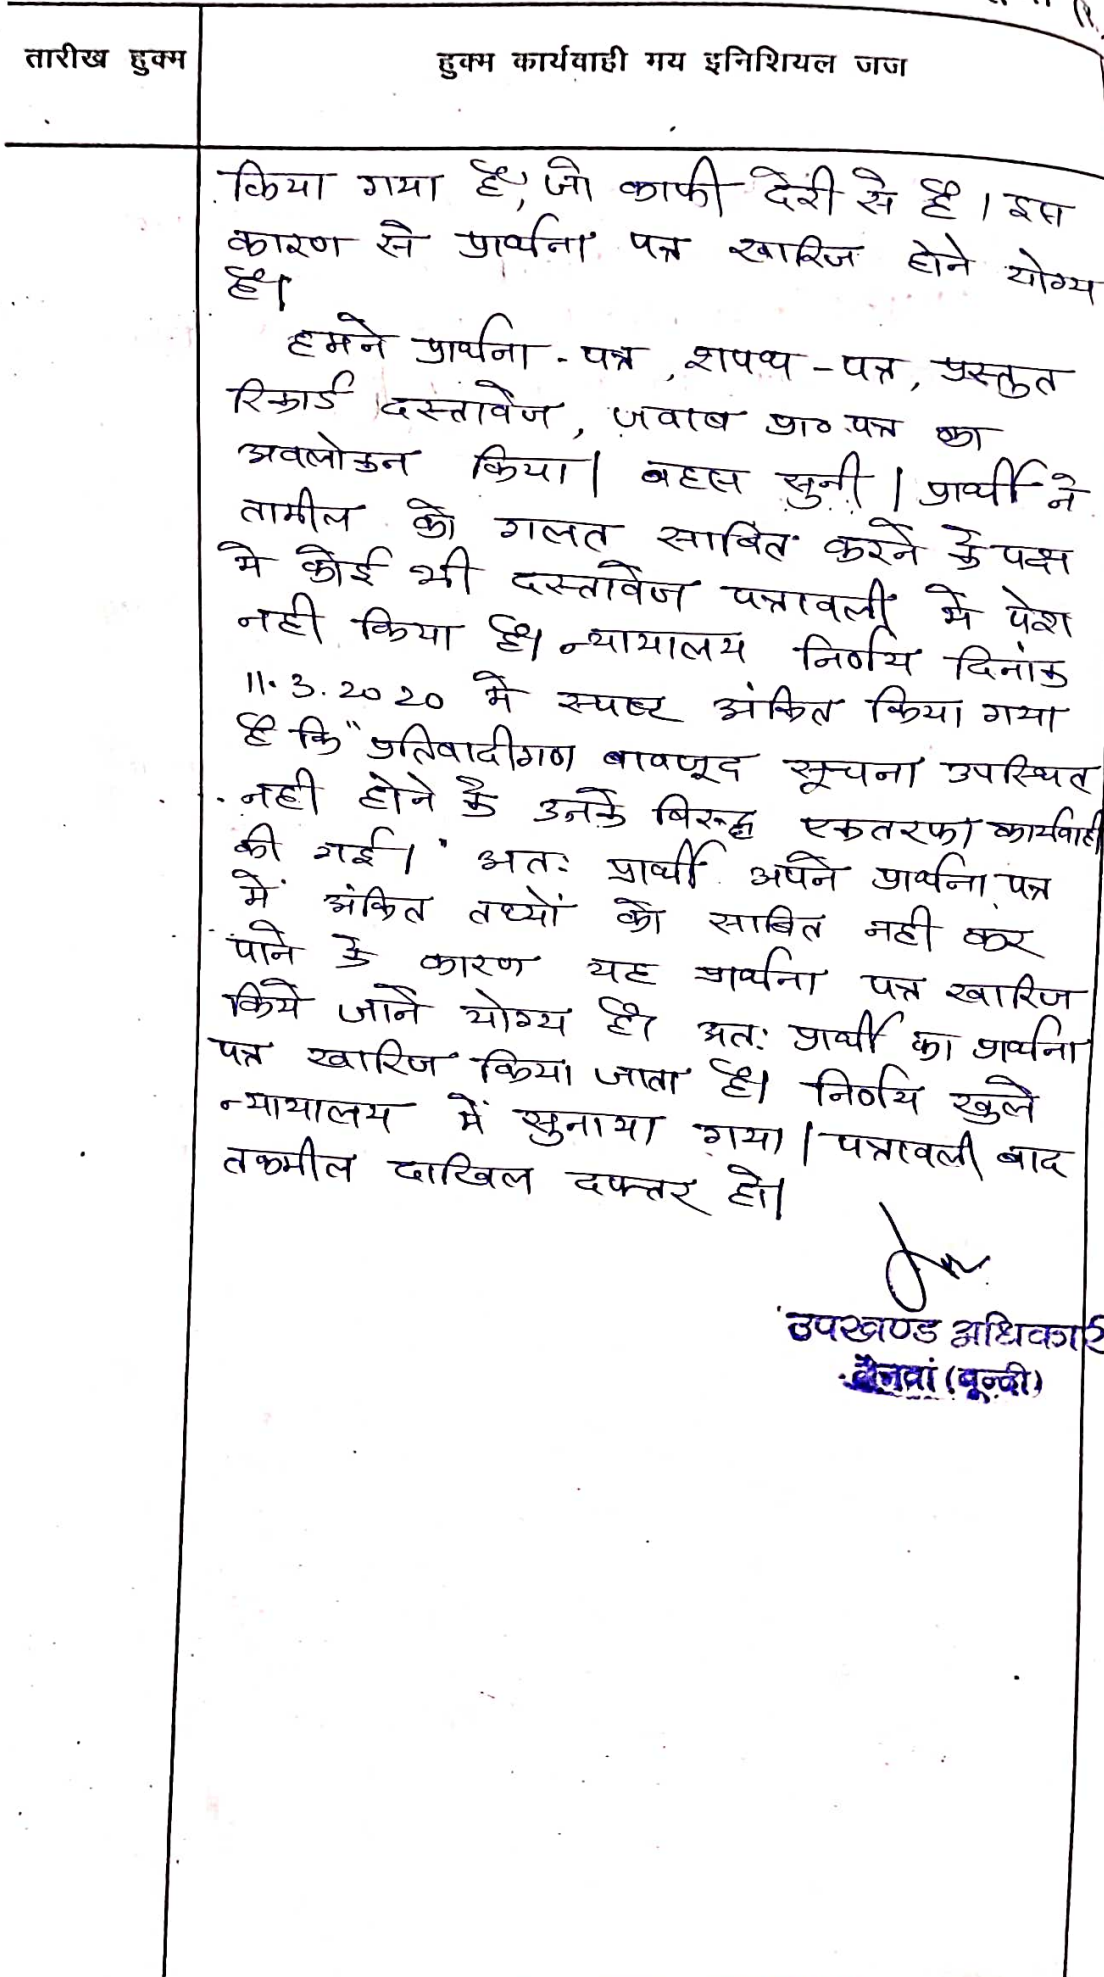 तारीख हुक्म
हुक्म कार्यवाही मय इनिशियल जज
किया गया है, जो काफी देरी से है। इस
कारण से प्रार्थना पत्र खारिज होने योग्य
है।
हमने प्रार्थना-पत्र, शपथ-पत्र, प्रस्तुत
रिकार्ड दस्तावेज, जवाब प्रा० पत्र का
अवलोकन किया। बहस सुनी। प्रार्थी ने
तामील को गलत साबित करने के पक्ष
मे कोई भी दस्तावेज पत्रावली मे पेश
नही किया है। न्यायालय निर्णय दिनांक
11.3.2020 मे स्पष्ट अंकित किया गया
है कि "प्रतिवादीगण बावजूद सूचना उपस्थित
नही होने के उनके बिरूद्ध एकतरफा कार्यवाही
की गई।" अतः प्रार्थी अपने प्रार्थना पत्र
में अंकित तथ्यों को साबित नही कर
पाने के कारण यह प्रार्थना पत्र खारिज
किये जाने योग्य है। अतः प्रार्थी का प्रार्थना
पत्र खारिज किया जाता है। निर्णय खुले
न्यायालय में सुनाया गया। पत्रावली बाद
तकमील दाखिल दफ्तर हो।
उपखण्ड अधिकारी
नैनवां (बून्दी)